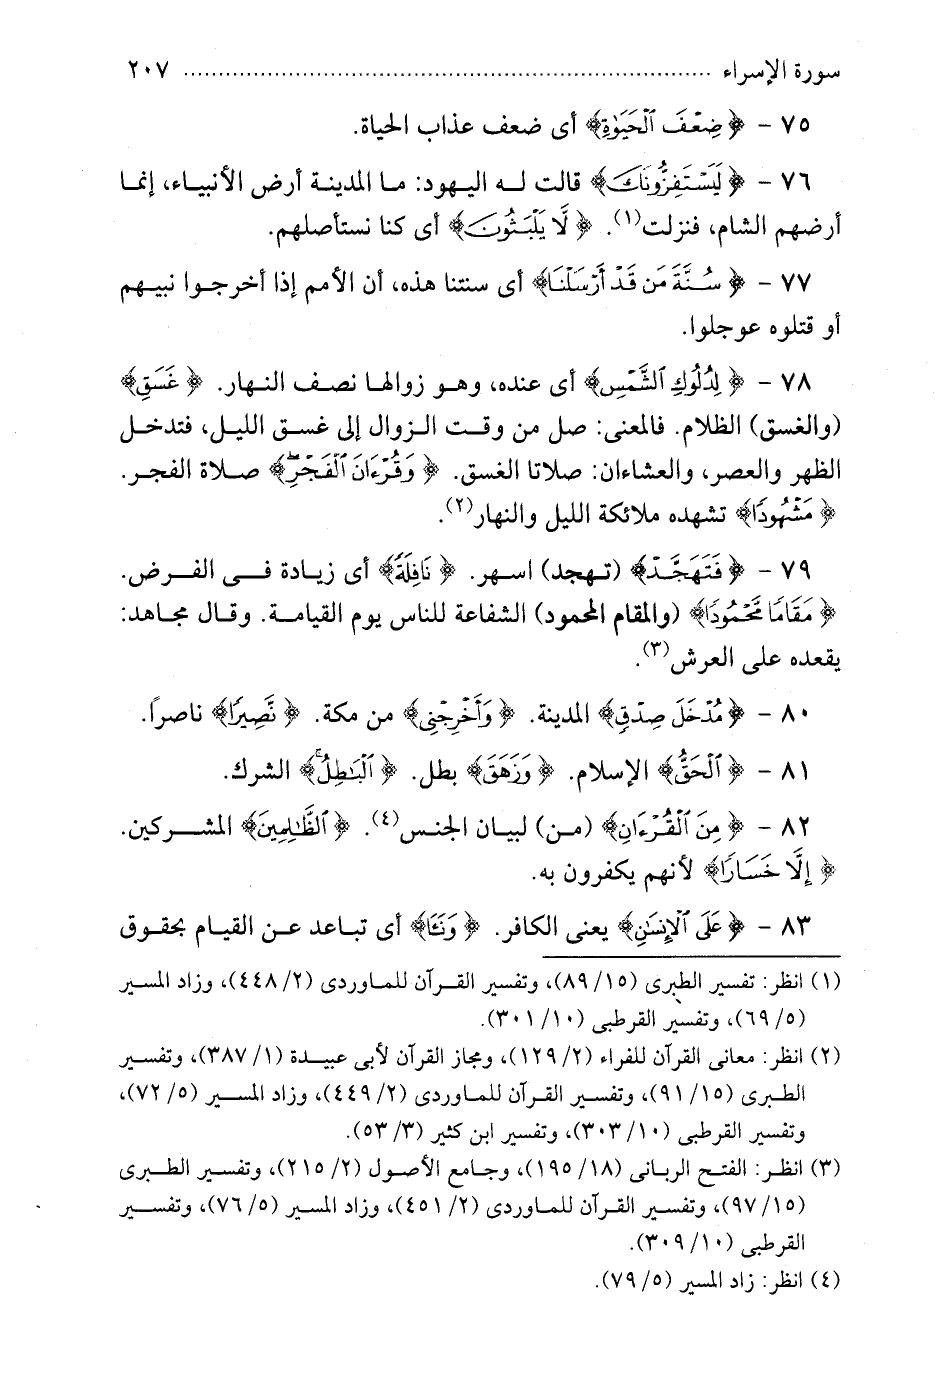 سورة الإسراء ........................................................................ ٢٠٧
٧٥ - ﴿ضِعْفَ ٱلْحَيَوٰةِ﴾ أى ضعف عذاب الحياة.
٧٦ - ﴿لَيَسْتَفِزُّونَكَ﴾ قالت له اليهود: ما المدينة أرض الأنبياء، إنما
أرضهم الشام، فنزلت(١). ﴿لَّا يَلْبَثُونَ﴾ أى كنا نستأصلهم.
٧٧ - ﴿سُنَّةَ مَن قَدْ أَرْسَلْنَا﴾ أى سنتنا هذه، أن الأمم إذا أخرجوا نبيهم
أو قتلوه عوجلوا.
٧٨ - ﴿لِدُلُوكِ ٱلشَّمْسِ﴾ أى عنده، وهو زوالها نصف النهار. ﴿غَسَقِ﴾
(والغسق) الظلام. فالمعنى: صل من وقت الزوال إلى غسق الليل، فتدخل
الظهر والعصر، والعشاءان: صلاتا الغسق. ﴿وَقُرْءَانَ ٱلْفَجْرِ ۖ﴾ صلاة الفجر.
﴿مَشْهُودًا﴾ تشهده ملائكة الليل والنهار(٢).
٧٩ - ﴿فَتَهَجَّدْ﴾ (تهجد) اسهر. ﴿نَافِلَةً﴾ أى زيادة فى الفرض.
﴿مَقَامًا مَّحْمُودًا﴾ (والمقام المحمود) الشفاعة للناس يوم القيامة. وقال مجاهد:
يقعده على العرش(٣).
٨٠ - ﴿مُدْخَلَ صِدْقٍ﴾ المدينة. ﴿وَأَخْرِجْنِى﴾ من مكة. ﴿نَّصِيرًا﴾ ناصراً.
٨١ - ﴿ٱلْحَقُّ﴾ الإسلام. ﴿وَزَهَقَ﴾ بطل. ﴿ٱلْبَـٰطِلُ ۚ﴾ الشرك.
٨٢ - ﴿مِنَ ٱلْقُرْءَانِ﴾ (من) لبيان الجنس(٤). ﴿ٱلظَّـٰلِمِينَ﴾ المشركين.
﴿إِلَّا خَسَارًا﴾ لأنهم يكفرون به.
٨٣ - ﴿عَلَى ٱلْإِنسَـٰنِ﴾ يعنى الكافر. ﴿وَنَـَٔا﴾ أى تباعد عن القيام بحقوق
(١) انظر: تفسير الطبرى (١٥/ ٨٩)، وتفسير القرآن للماوردى (٢/ ٤٤٨)، وزاد المسير
(٥/ ٦٩)، وتفسير القرطبى (١٠/ ٣٠١).
(٢) انظر: معانى القرآن للفراء (٢/ ١٢٩)، ومجاز القرآن لأبى عبيدة (١/ ٣٨٧)، وتفسير
الطبرى (١٥/ ٩١)، وتفسير القرآن للماوردى (٢/ ٤٤٩)، وزاد المسير (٥/ ٧٢)،
وتفسير القرطبى (١٠/ ٣٠٣)، وتفسير ابن كثير (٣/ ٥٣).
(٣) انظر: الفتح الربانى (١٨/ ١٩٥)، وجامع الأصول (٢/ ٢١٥)، وتفسير الطبرى
(١٥/ ٩٧)، وتفسير القرآن للماوردى (٢/ ٤٥١)، وزاد المسير (٥/ ٧٦)، وتفسير
القرطبى (١٠/ ٣٠٩).
(٤) انظر: زاد المسير (٥/ ٧٩).